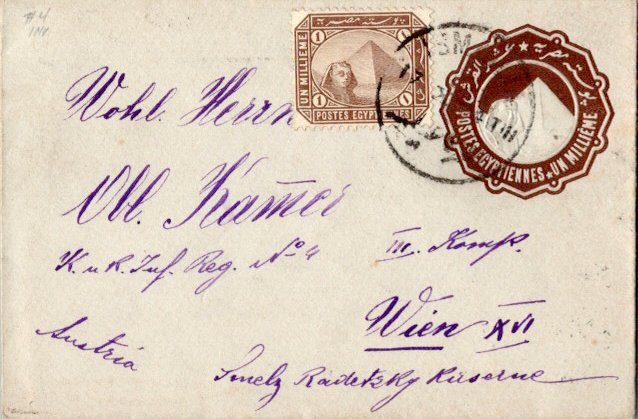 #4
INV
بوسته مصرية
1 1
UN MILLIEME
1 1
POSTES EGYPTIENNES
POSTES EGYPTIENNES ★ UN MILLIÈME
Wohl. Herrn
Obl. Kamer
K. u. K. Inf. Reg. No 4 III. Komp.
Wien XVI
Austria
Smelz Radetzky Kaserne